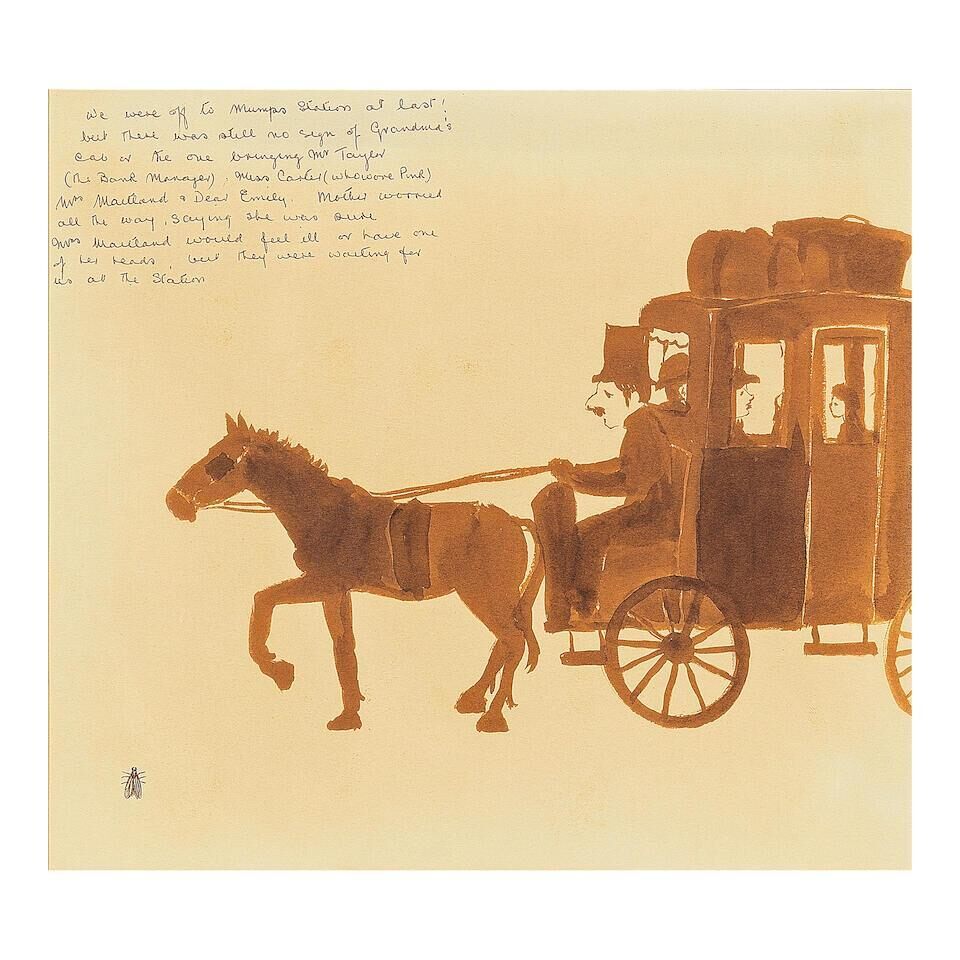 We were off to Mumps Station at last!
but there was still no sign of Grandma's
Cab or the one bringing Mr Tayler
(the Bank Manager), Miss Carter (who wore Pink)
Mrs Maitland & Dear Emily. Mother worried
all the way, saying she was sure
Mrs Maitland would feel ill or have one
of her heads, but they were waiting for
us at the Station